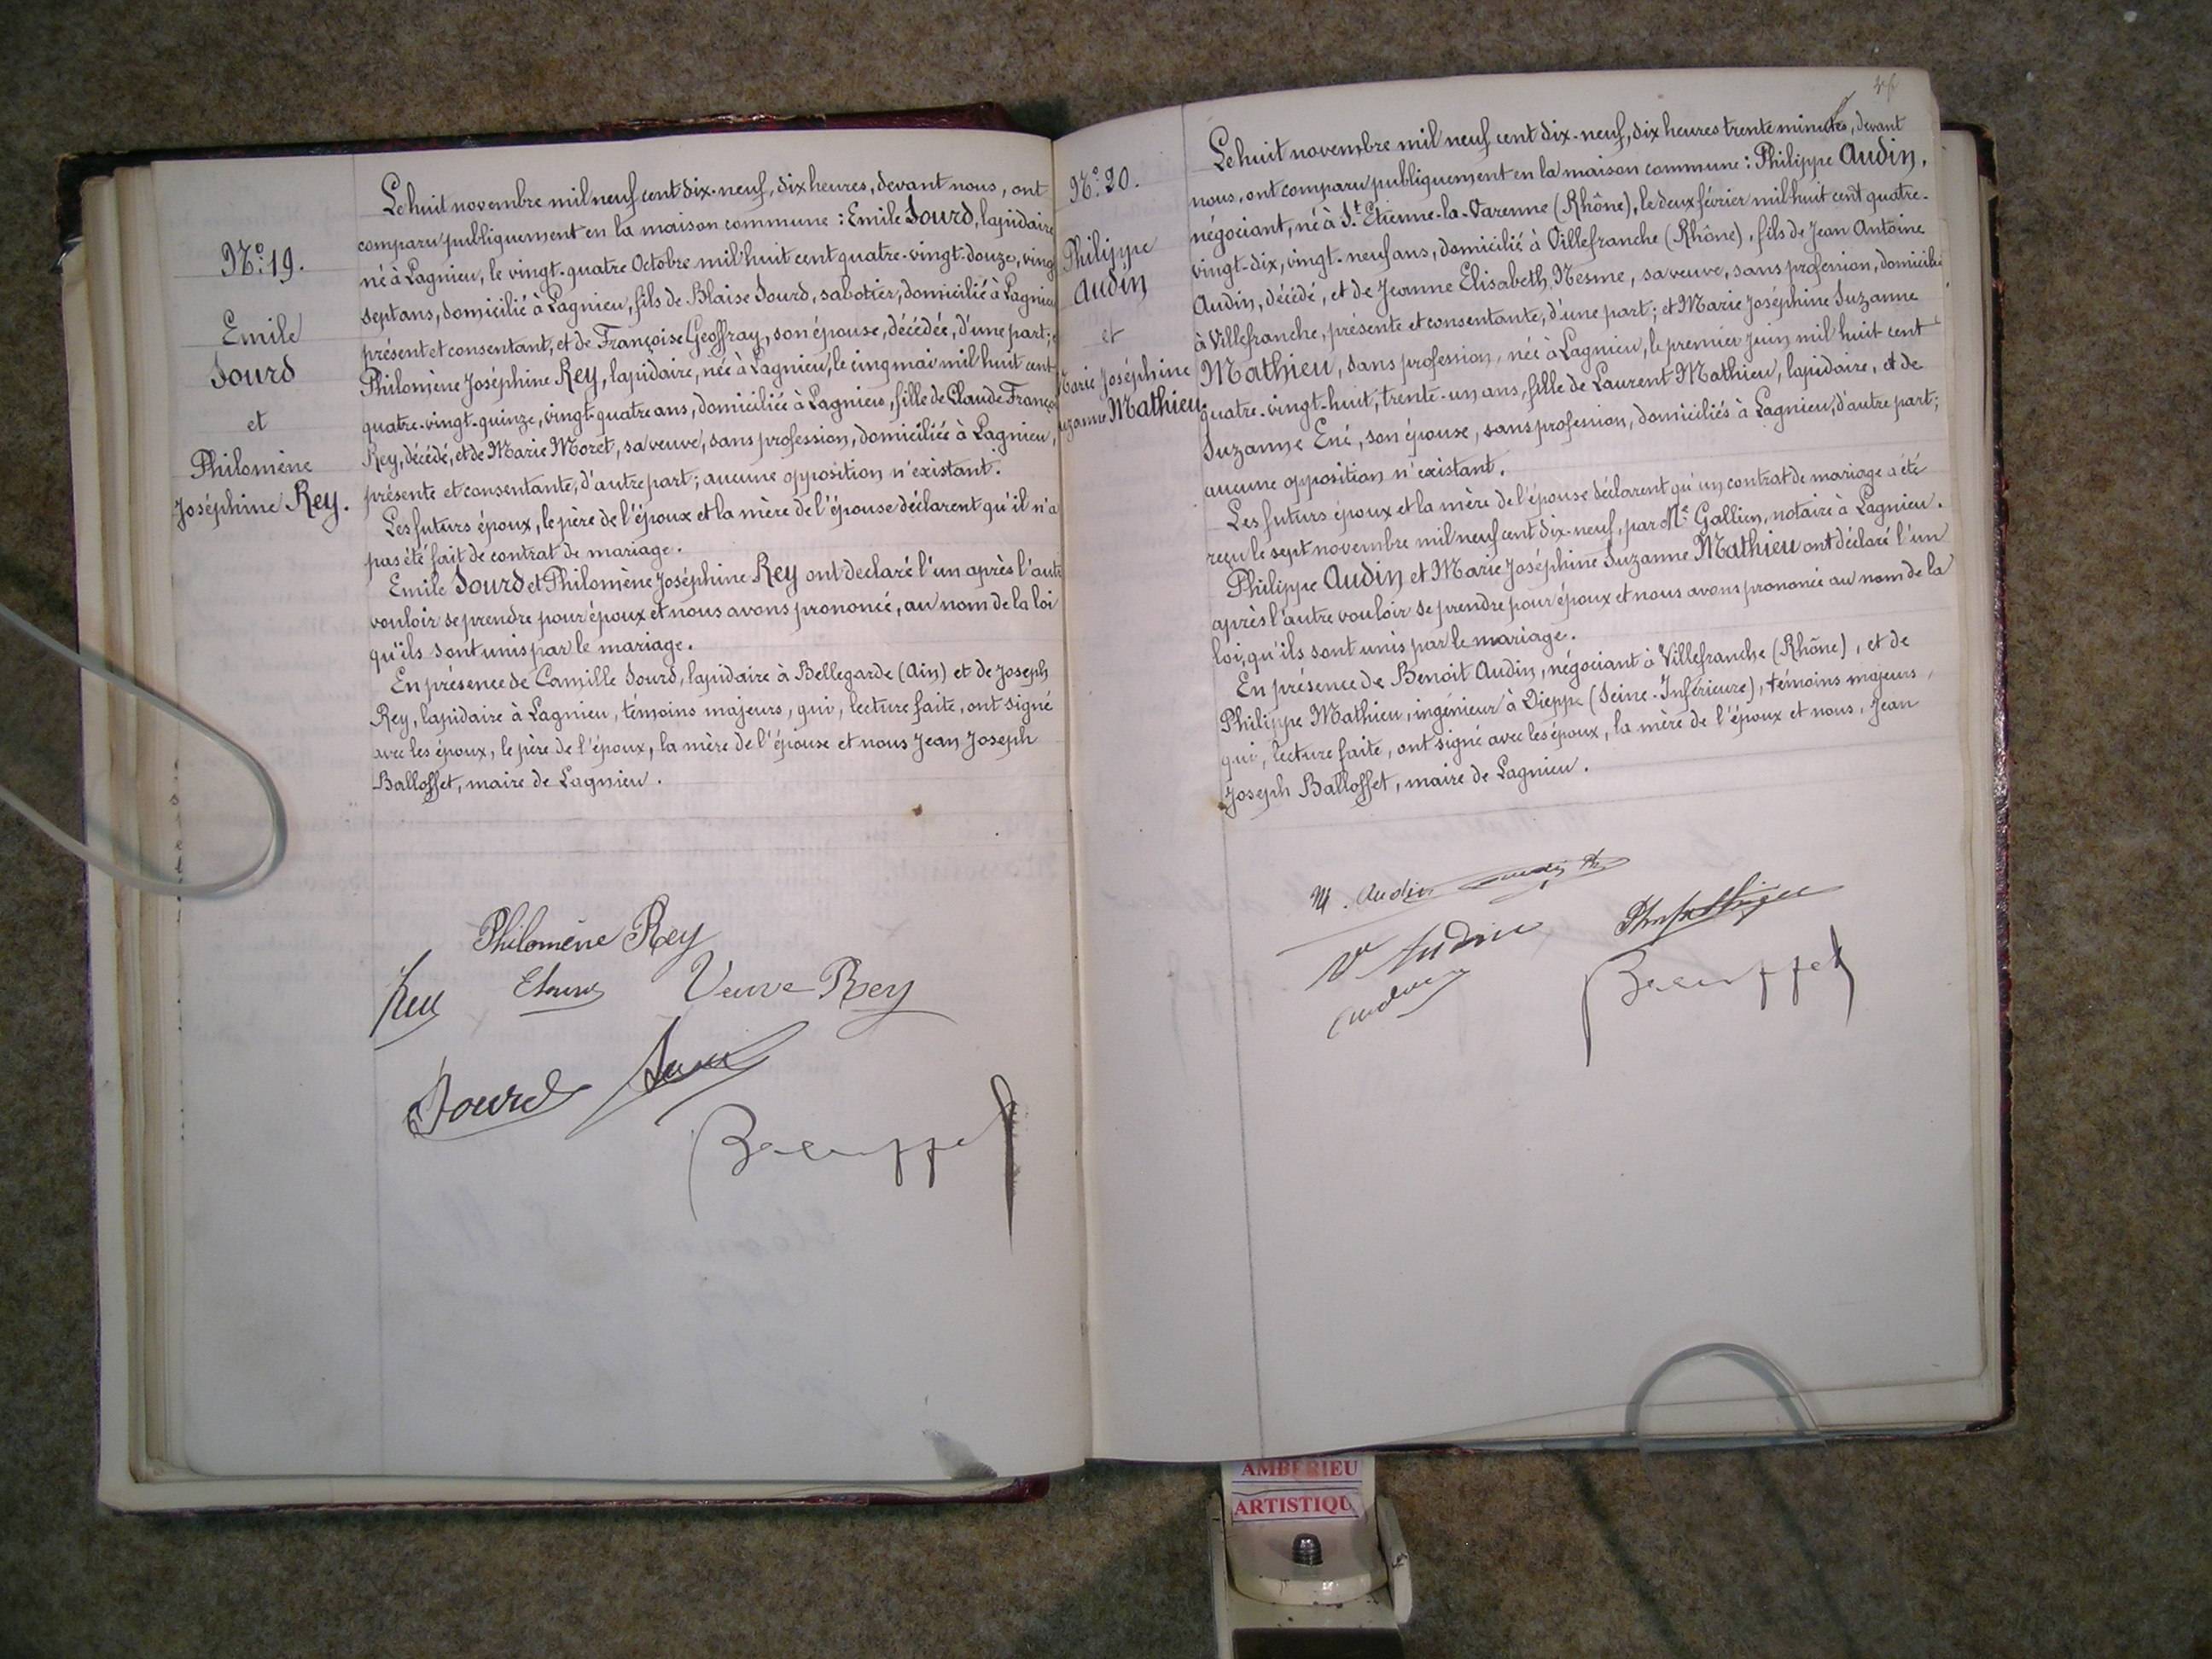 N° 19.
Emile
Sourd
et
Philomène
Joséphine Rey.
Le huit novembre mil neuf cent dix-neuf, dix heures, devant nous, ont
comparu publiquement en la maison commune : Emile Sourd, lapidaire
né à Lagnieu, le vingt-quatre Octobre mil huit cent quatre-vingt-douze, ving
sept ans, domicilié à Lagnieu, fils de Blaise Sourd, sabotier, domicilié à Lagnieu
présent et consentant, et de Françoise Geoffray, son épouse, décédée, d'une part;
Philomène Joséphine Rey, lapidaire, née à Lagnieu, le cinq mai mil huit cent
quatre-vingt-quinze, vingt-quatre ans, domiciliée à Lagnieu, fille de Claude François
Rey, décédé, et de Marie Moret, sa veuve, sans profession, domiciliée à Lagnieu,
présente et consentante, d'autre part; aucune opposition n'existant.
Les futurs époux, le père de l'époux et la mère de l'épouse déclarent qu'il n'a
pas été fait de contrat de mariage.
Emile Sourd et Philomène Joséphine Rey ont declaré l'un après l'autre
vouloir se prendre pour époux et nous avons prononcé, au nom de la loi
qu'ils sont unis par le mariage.
En présence de Camille Sourd, lapidaire à Bellegarde (Ain) et de Joseph
Rey, lapidaire à Lagnieu, témoins majeurs, qui, lecture faite, ont signé
avec les époux, le père de l'époux, la mère de l'épouse et nous Jean Joseph
Balloffet, maire de Lagnieu.
Philomène Rey
Rey ESourd Veuve Rey
Sourd
Balloffet
N° 20.
Philippe
Audin
et
Marie Joséphine
uzanne Mathieu.
Le huit novembre mil neuf cent dix-neuf, dix heures trente minutes, devant
nous, ont comparu publiquement en la maison commune : Philippe Audin,
négociant, né à St Etienne-la-Varenne (Rhône), le deux février mil huit cent quatre-
vingt-dix, vingt-neuf ans, domicilié à Villefranche (Rhône), fils de Jean Antoine
Audin, décédé, et de Jeanne Elisabeth Nesme, sa veuve, sans profession, domiciliée
à Villefranche, présente et consentante, d'une part; et Marie Joséphine Suzanne
Mathieu, sans profession, née à Lagnieu, le premier Juin mil huit cent
quatre-vingt-huit, trente-un ans, fille de Laurent Mathieu, lapidaire, et de
Suzanne Ené, son épouse, sans profession, domiciliés à Lagnieu, d'autre part;
aucune opposition n'existant.
Les futurs époux et la mère de l'épouse déclarent qu'un contrat de mariage a été
reçu le sept novembre mil neuf cent dix-neuf, par Me Gallien, notaire à Lagnieu.
Philippe Audin et Marie Joséphine Suzanne Mathieu ont déclaré l'un
après l'autre vouloir se prendre pour époux et nous avons prononcé au nom de la
loi, qu'ils sont unis par le mariage.
En présence de Benoit Audin, négociant à Villefranche (Rhône), et de
Philippe Mathieu, ingénieur à Dieppe (Seine-Inférieure), témoins majeurs,
qui, lecture faite, ont signé avec les époux, la mère de l'époux et nous, Jean
Joseph Balloffet, maire de Lagnieu.
M. Audin
Ve Audin
Audin
Balloffet
AMBERIEU
ARTISTIQU